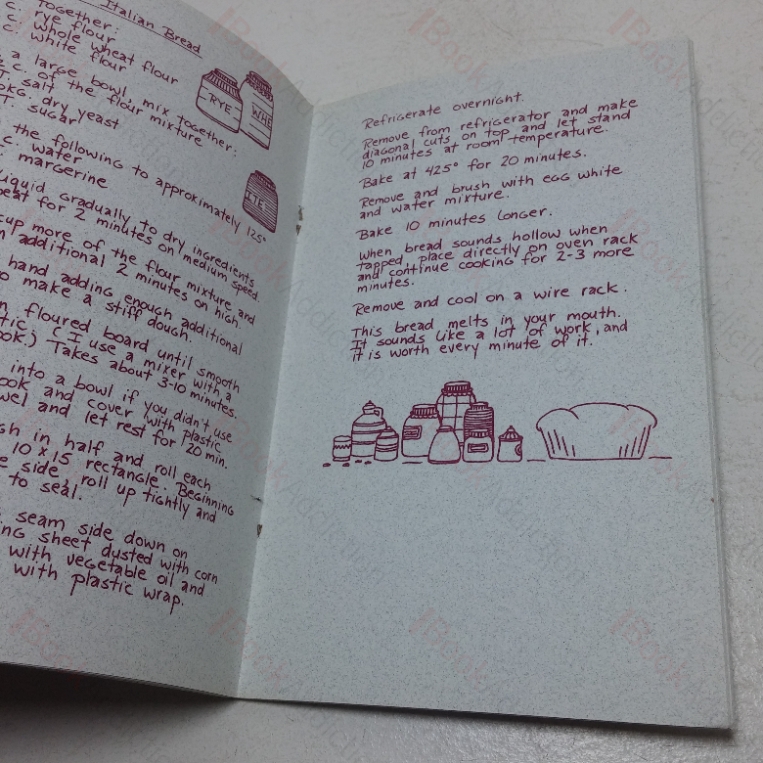 Italian Bread
Together:
c. rye flour
c. whole wheat flour
c. white flour
a large bowl, mix together:
c. of the flour mixture
T. salt
pkg. dry yeast
T. sugar
the following to approximately 125°
c. water
margerine
liquid gradually to dry ingredients
beat for 2 minutes on medium speed.
cup more of the flour mixture and
additional 2 minutes on high.
hand adding enough additional
to make a stiff dough.
floured board until smooth
(I use a mixer with a
Takes about 3-10 minutes.
into a bowl if you didn't use
and cover with plastic
and let rest for 20 min.
in half and roll each
10 x 15 rectangle. Beginning
side, roll up tightly and
to seal.
seam side down on
sheet dusted with corn
with vegetable oil and
with plastic wrap.
RYE
WHE
ITE
Refrigerate overnight.
Remove from refrigerator and make
diagonal cuts on top and let stand
10 minutes at room temperature.
Bake at 425° for 20 minutes.
Remove and brush with egg white
and water mixture.
Bake 10 minutes longer.
When bread sounds hollow when
tapped place directly on oven rack
and continue cooking for 2-3 more
minutes.
Remove and cool on a wire rack.
This bread melts in your mouth.
It sounds like a lot of work, and
it is worth every minute of it.